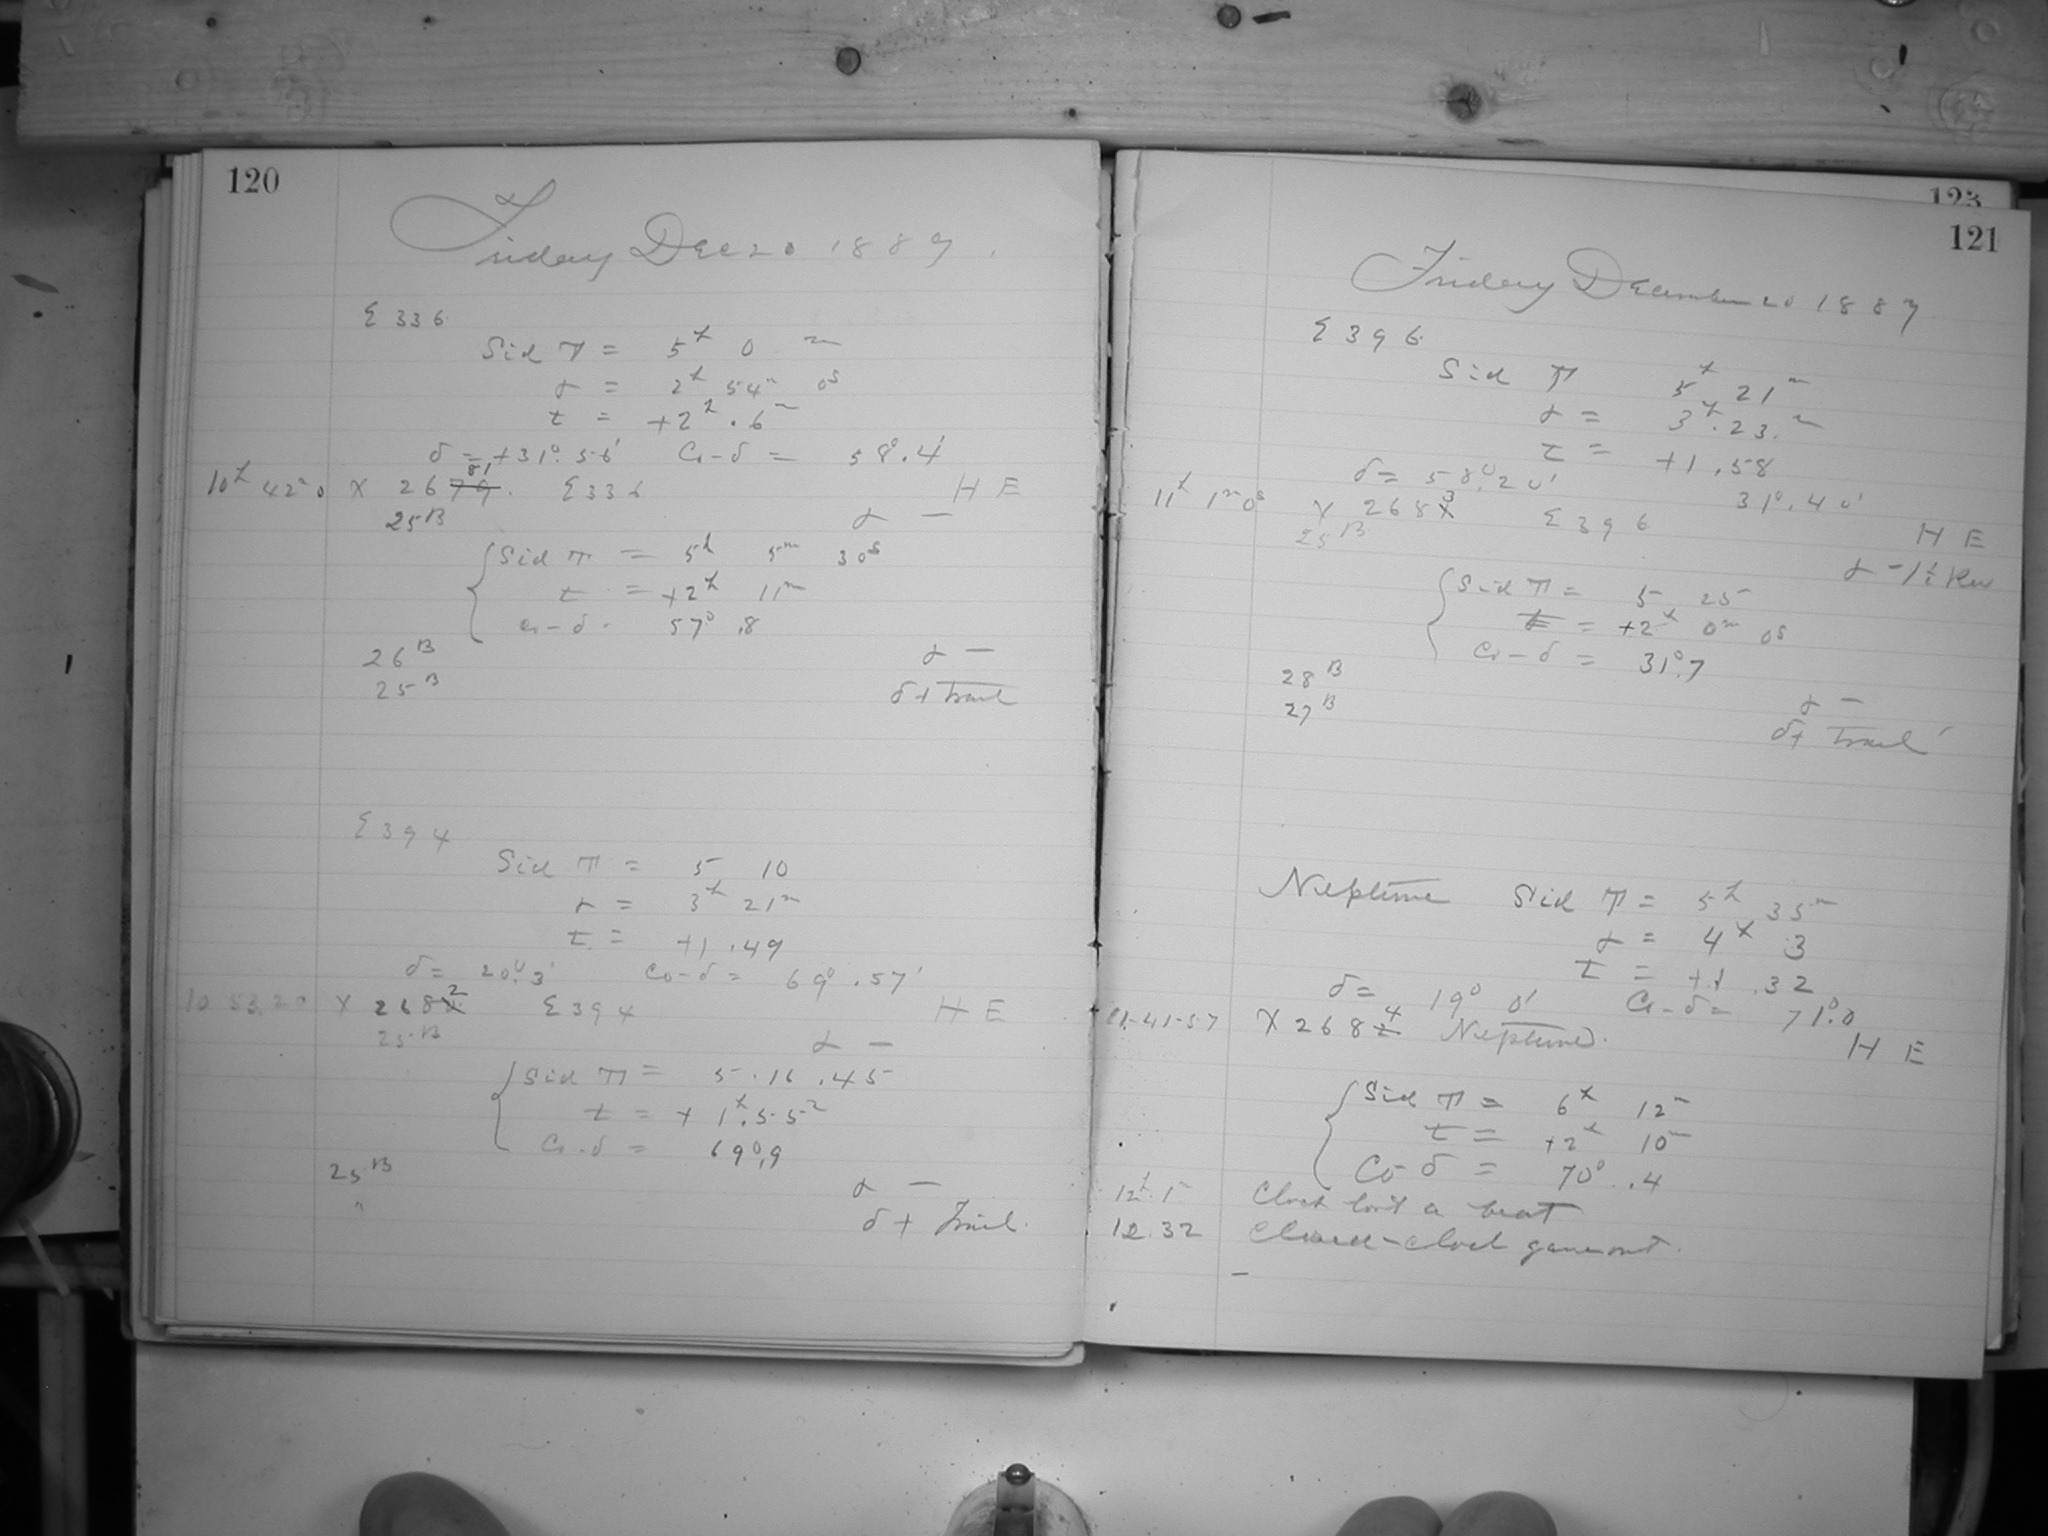 120
Friday Dec 20 1889.
Σ 336
Sid T = 5h 0 m
α = 2h 54m 0s
t = +2h.6m
δ = +31°.56' Co-δ = 58°.4'
81
10h 42m 0 X 2679. Σ336 H E
25B α —
Sid T = 5h 5m 30s
t = +2h 11m
Co-δ = 57°.8
26B α —
25B δ+ Trail
Σ 394
Sid T = 5 10
α = 3h 21m
t = +1.49
δ = 20°.3' Co-δ = 69°.57'
2
10 53.20 X 268 Σ 394 H E
25B α —
Sid T = 5.16.45
t = +1h.55
Co-δ = 69°.9
25B α —
" δ + Trail.
123
121
Friday December 20 1889
Σ 396
Sid T 5h 21m
α = 3h.23.m
t = +1.58
δ = 58°.20' 31°.40'
3
11h 1m 0s X 268 Σ 396 H E
25B α -1½ Rev
Sid T = 5 25
t = +2h 0m 0s
Co-δ = 31°.7
28B α —
27B δ+ Trail
Neptune Sid T = 5h 35m
α = 4h 3
t = +1.32
δ = 19° 0' Co-δ = 71°.0
4
11-41-57 X 2682 Neptune. H E
Sid T = 6h 12m
t = +2h 10m
Co-δ = 70°.4
12h.1 Clock lost a beat
12.32 Closed-clock gave out.